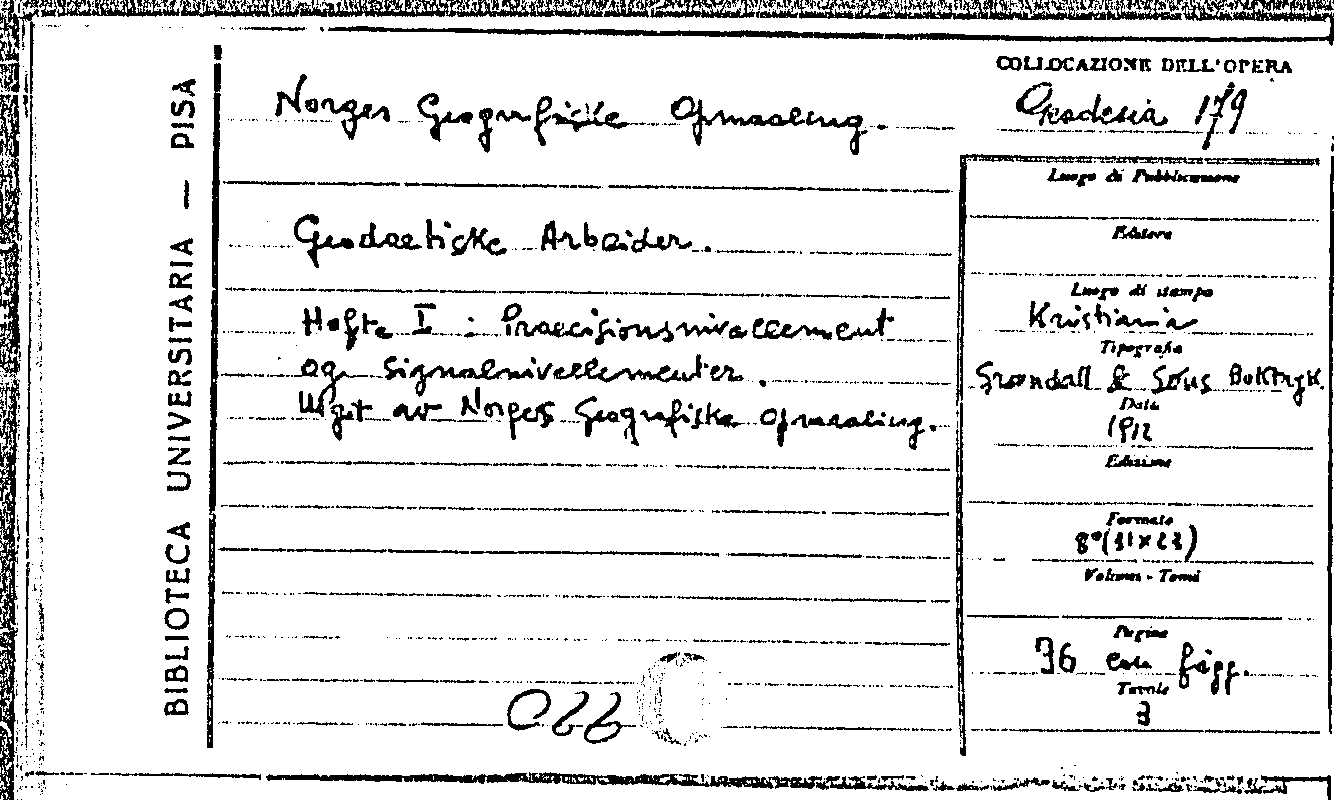 BIBLIOTECA UNIVERSITARIA — PISA
Norges Geografiske Opmaaling.
Geodaetiske Arbeider.
Hefte I : Praecisionsnivellement
og Signalnivellementer.
Utgit av Norges Geografiske Opmaaling.
022
COLLOCAZIONE DELL'OPERA
Geodesia 179
Luogo di Pubblicazione
Editore
Luogo di stampa
Kristiania
Tipografia
Grøndall & Søns Boktryk.
Data
1912
Edizione
Formato
8°(31×23)
Volumi - Tomi
Pagine
36 con figg.
Tavole
3